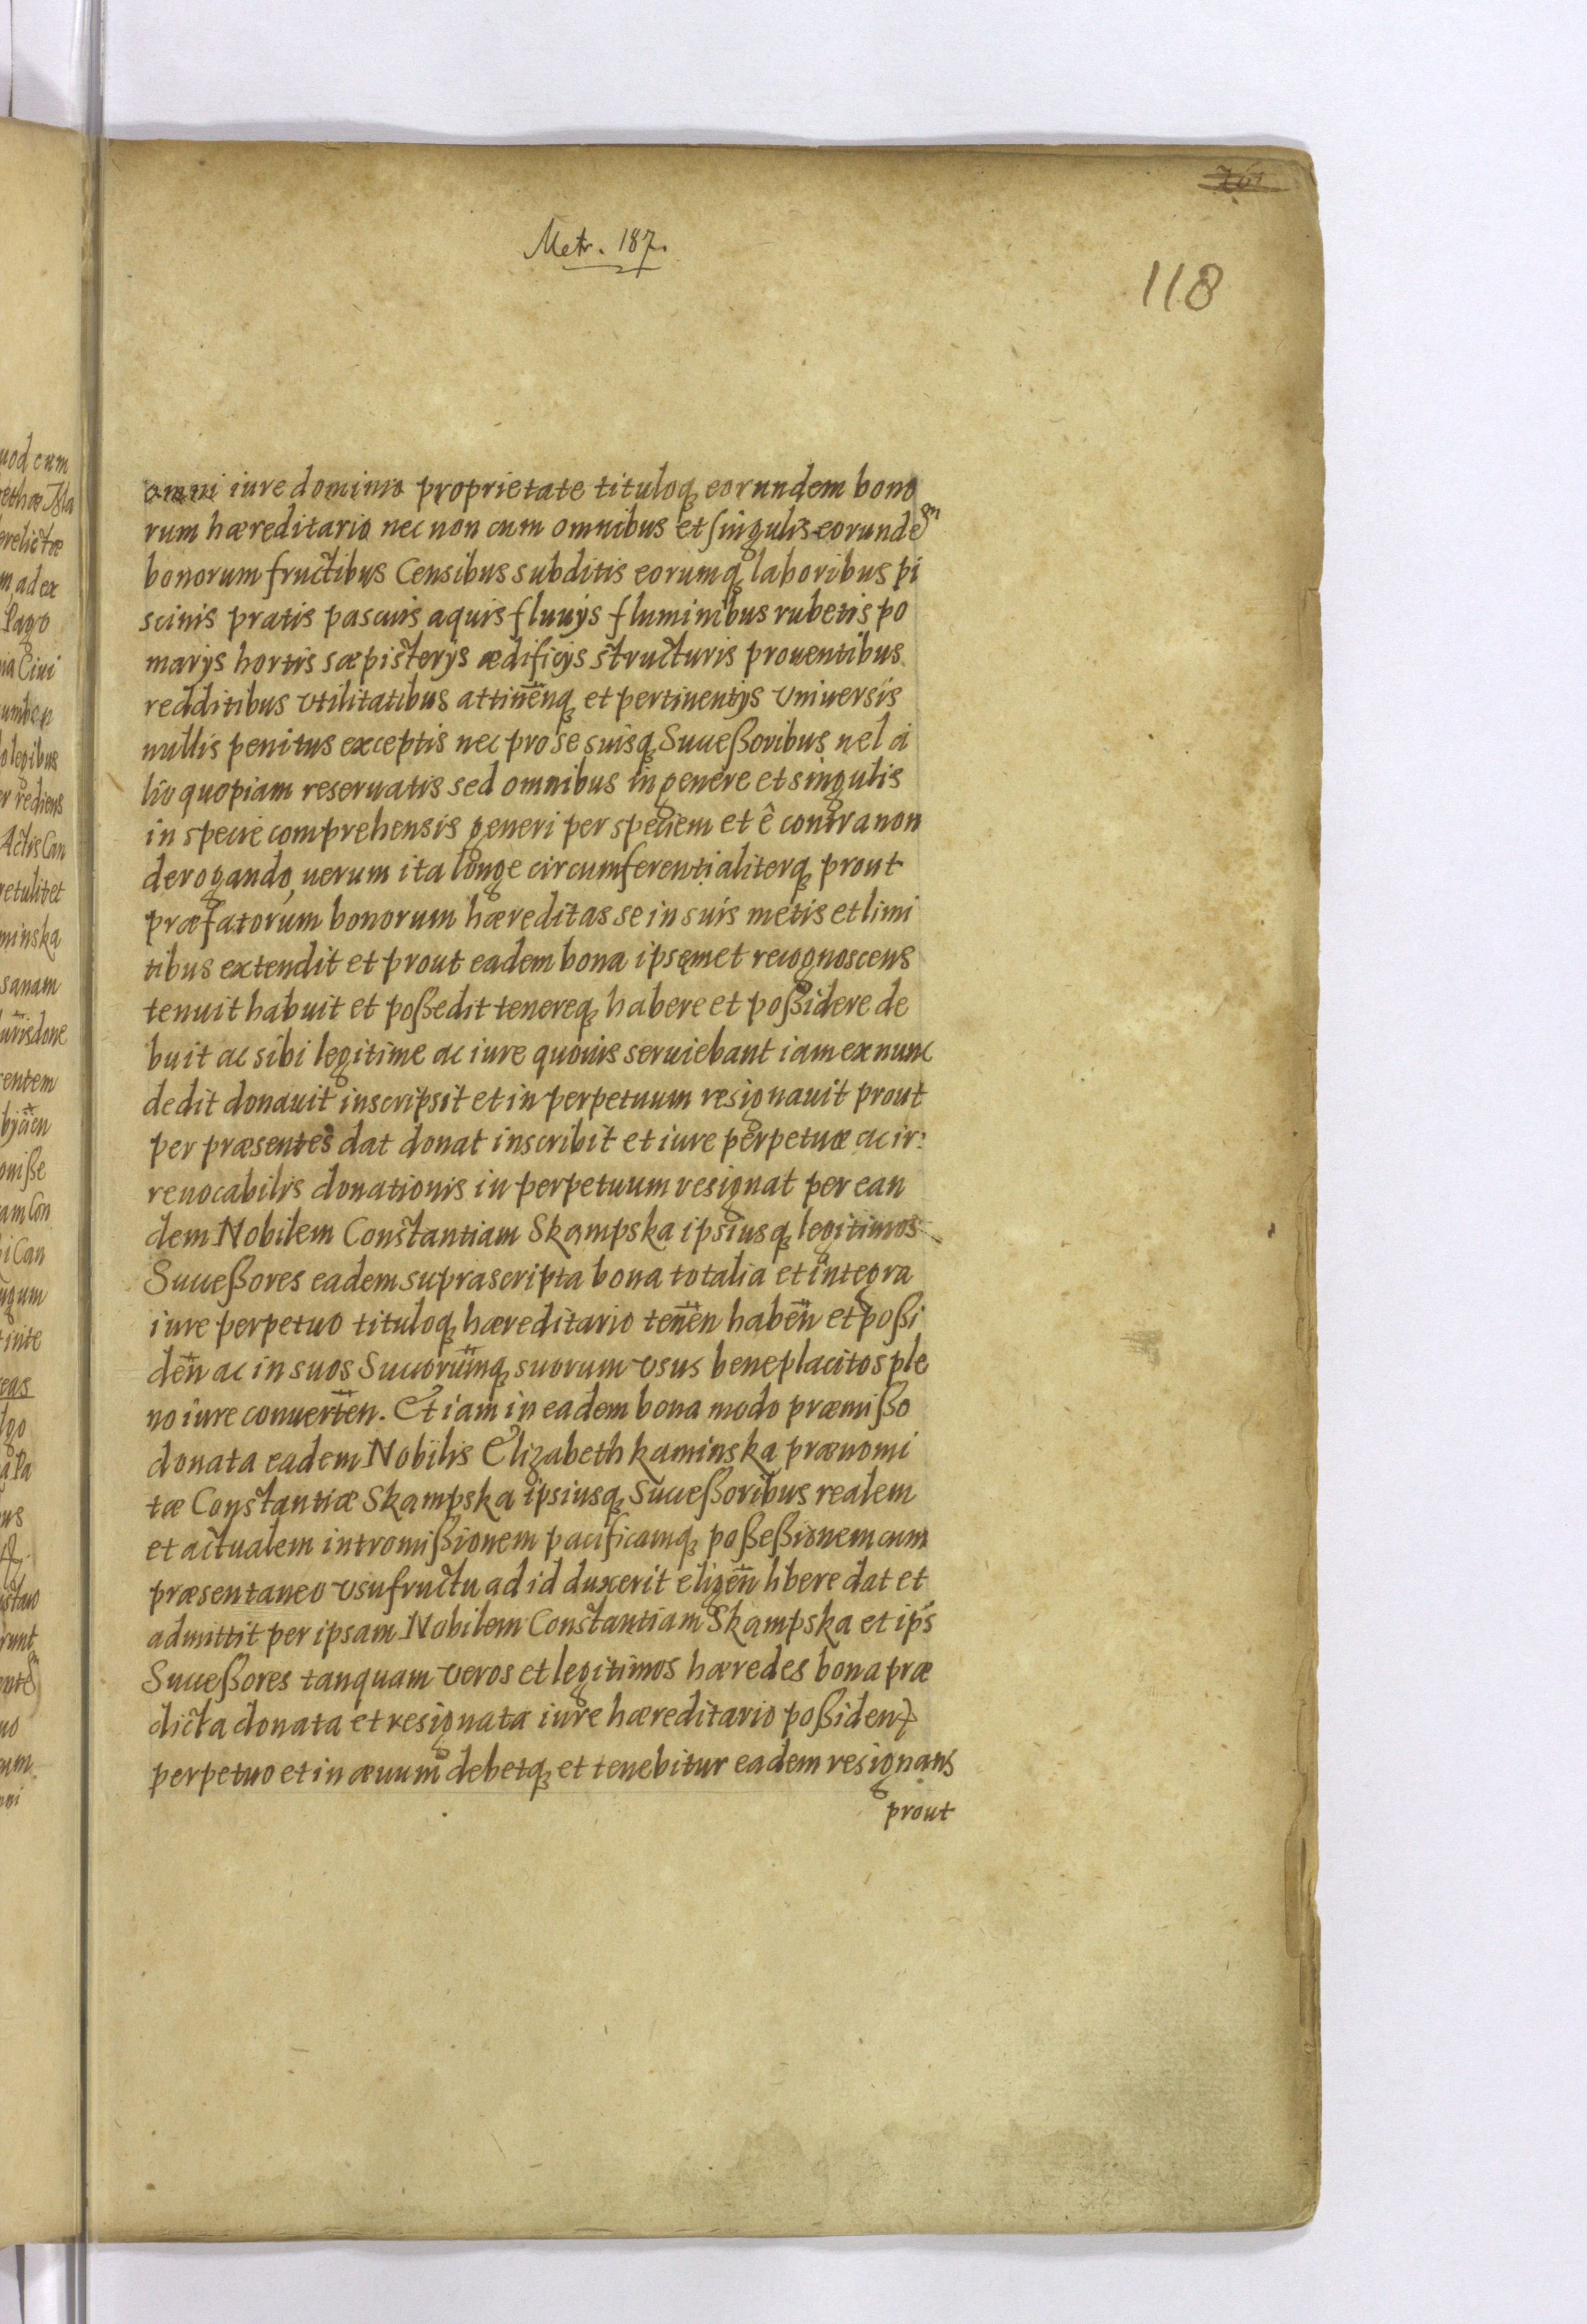 Metr. 187.
118
omni iure dominio proprietate tituloq₃ eorundem bono
rum hæreditario nec non cum omnibus et singulis eorundem
bonorum fructibus Censibus subditis eorumq₃ laboribus pi
scinis pratis pascuis aquis fluuijs fluminibus rubetis po
marijs hortis sæpisterijs ædificijs structuris prouentibus
redditibus vtilitatibus attinen̄q₃ et pertinentijs vniuersis
nullis penitus exceptis nec pro se suisq₃ Succeßoribus uel a
lio quopiam reseruatis sed omnibus in genere et singulis
in specie comprehensis generi per speciem et ê contra non
derogando, uerum ita longe circumferentialiterq₃ prout
præfatorum bonorum hæreditas se in suis metis et limi
tibus extendit et prout eadem bona ipsęmet recognoscens
tenuit habuit et poßedit tenereq₃ habere et poßidere de
buit ac sibi legitime ac iure quouis seruiebant iam ex nunc
dedit donauit inscripsit et in perpetuum resignauit prout
per præsentes dat donat inscribit et iure perpetuæ ac ir:
reuocabilis donationis in perpetuum resignat per ean
dem Nobilem Constantiam Skąmpska ipsiusq₃ legitimos
Succeßores eadem suprascripta bona totalia et integra
iure perpetuo tituloq₃ hæreditario tenen̄ haben̄ et poßi
den̄ ac in suos Succorum̄q₃ suorum vsus beneplacitos ple
no iure conuerten̄. Et iam in eadem bona modo præmißo
donata eadem Nobilis Elizabeth kaminska prænomi
tæ Constantiæ Skąmpska ipsiusq₃ Succeßoribus realem
et actualem intromißionem pacificamq₃ poßeßionem cum
præsentaneo vsufructu ad id duxerit eligen̄ libere dat et
admittit per ipsam Nobilem Constantiam Skąmpska et ips
Succeßores tanquam veros et legitimos hæredes bona præ
dicta donata et resignata iure hæreditario poßiden̄
perpetuo et in æuum debetq₃ et tenebitur eadem resignans
prout